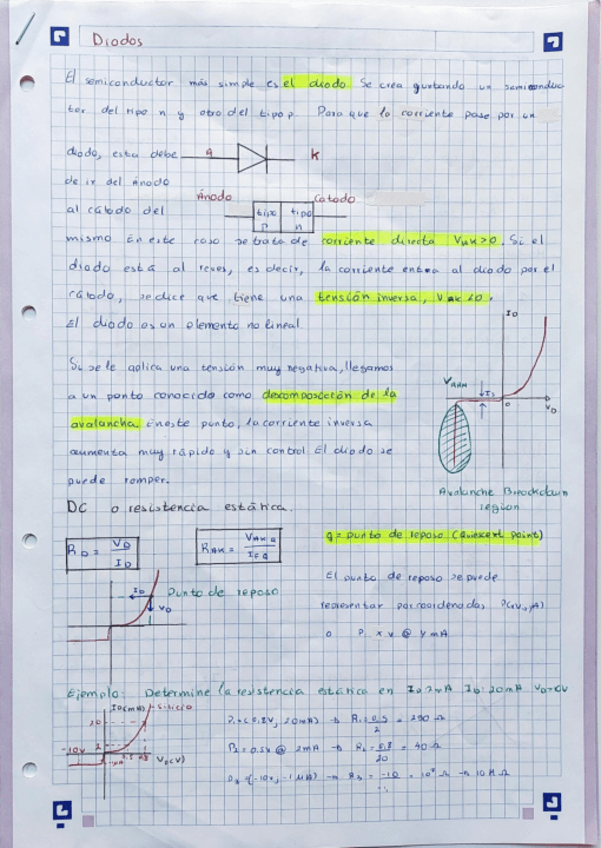 Diodos
El semiconductor más simple es el diodo Se crea gustando un semiconduc
tor del tipo n y otro del tipo p. Para que la corriente pase por un
diodo, esta debe
A K
de ir del Ánodo
Ánodo Catodo
al cátodo del
tipo p tipo n
mismo En este caso se trata de corriente directa VAK>0. Si el
diodo está al reves, es decir, la corriente entra al diodo por el
cátodo, se dice que tiene una tensión inversa, VAK<0.
El diodo es un elemento no lineal
ID
Si se le aplica una tensión muy negativa, llegamos
a un punto conocido como descomposición de la
Is
0 VD
avalancha. En este punto, la corriente inversa
aumenta muy rápido y sin control El diodo se
puede romper.
Avalanche Breckdown
region
DC o resistencia estática.
RD = VD / ID
RAK = VAKQ / IFQ
q = punto de reposo (Quiescent point)
ID Punto de reposo
VD
El punto de reposo se puede
representar por coordenadas P(xV, yA)
o P. x V @ y mA
Ejemplo: Determine la resistencia estática en ID 2mA ID=20mA
ID(mA) Silicio
20
-10V 2
VD(V)
P1=(0.8V, 20mA) → R1= 0.5 / 2 = 250 Ω
P2=0.5V @ 2mA → R2= 0.8 / 20 = 40 Ω
(-10v, -1 µA) → R3= -10 = 10⁷ Ω → 10 M Ω